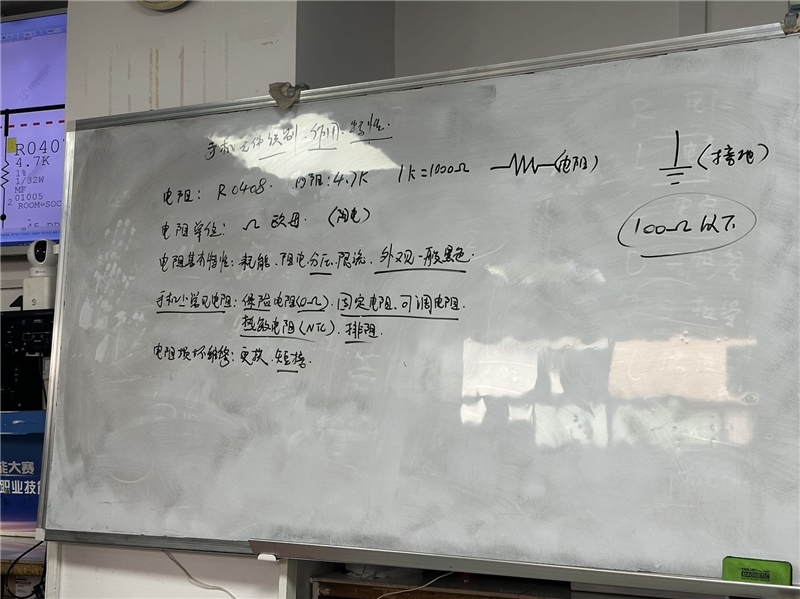 手机元件识别.作用.特性.
电阻: R0408. 内阻:4.7K 1K=1000Ω (电阻) (接地)
100Ω以下
电阻单位: Ω 欧母. (阻电)
电阻基本特性: 耗能、阻电分压、限流、外观一般黑色.
手机上常见电阻: 保险电阻(0Ω). 固定电阻、可调电阻.
热敏电阻(NTC). 排阻.
电阻损坏维修: 更换.短接.
R040
4.7K
1%
1/32W
MF
01005
ROOM=SOC
能大赛
职业技能
MAGNETIC